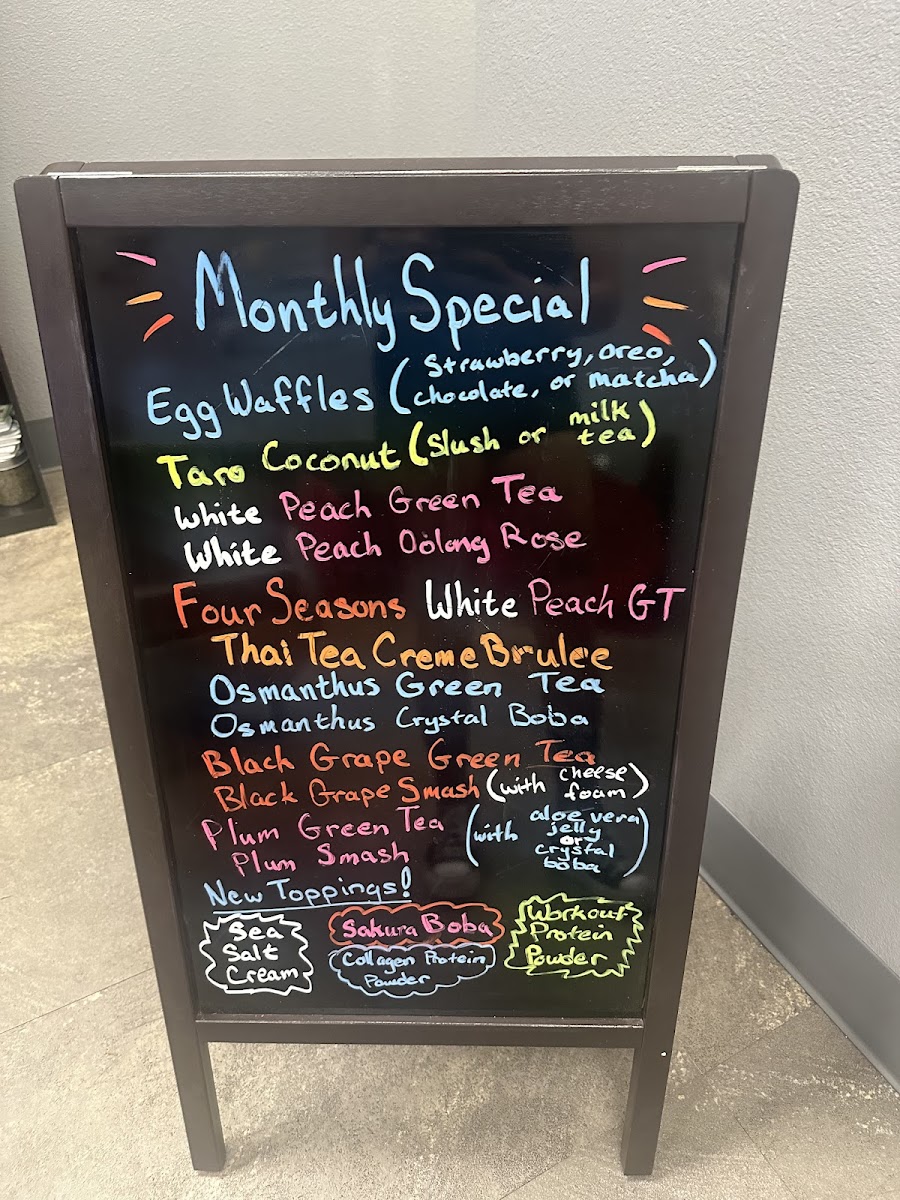 Monthly Special
Egg Waffles (Strawberry, oreo,
chocolate, or matcha)
Taro Coconut (Slush or milk
tea)
White Peach Green Tea
White Peach Oolong Rose
Four Seasons White Peach GT
Thai Tea Creme Brulee
Osmanthus Green Tea
Osmanthus Crystal Boba
Black Grape Green Tea
Black Grape Smash (with cheese
foam)
Plum Green Tea
Plum Smash
(with aloe vera
jelly
or
crystal
boba)
New Toppings!
Sea
Salt
Cream
Sakura Boba
Collagen Protein
Powder
Workout
Protein
Powder